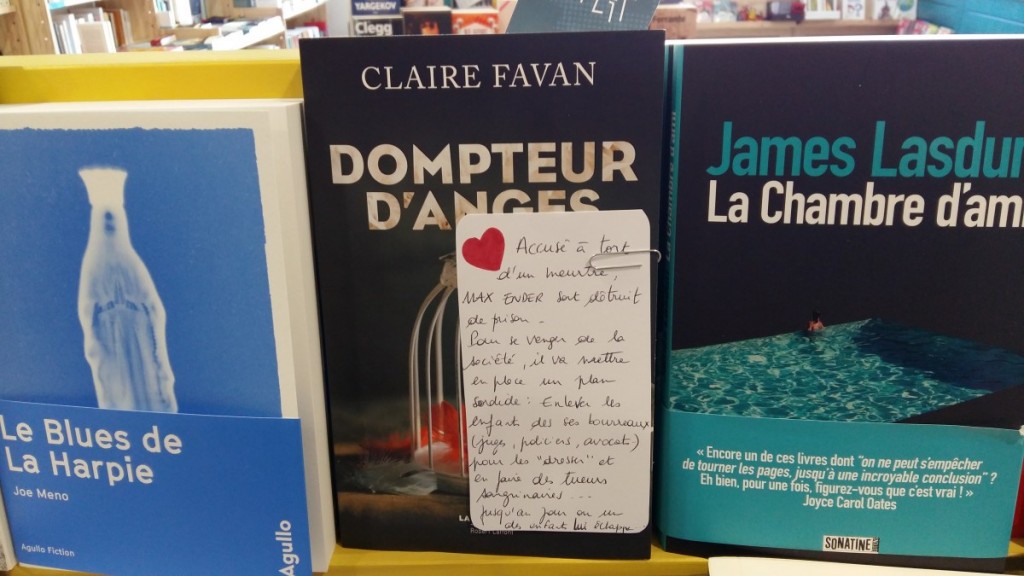 YARGEKOV
Clegg
Le Blues de
La Harpie
Joe Meno
Agullo Fiction
Agullo
CLAIRE FAVAN
DOMPTEUR
D'ANGES
Accusé à tort
d'un meurtre,
MAX ENDER sort détruit
de prison.
Pour se venger de la
société, il va mettre
en place un plan
sordide : Enlever les
enfant des ses bourreaux
(juges, policiers, avocats)
pour les "dresser" et
en faire des tueurs
sanguinaires ...
jusqu'au jour où un
des enfant lui échappe
LA
Robert Laffont
James Lasdun
La Chambre d'ami
« Encore un de ces livres dont "on ne peut s'empêcher
de tourner les pages, jusqu'à une incroyable conclusion" ?
Eh bien, pour une fois, figurez-vous que c'est vrai ! »
Joyce Carol Oates
SONATINE